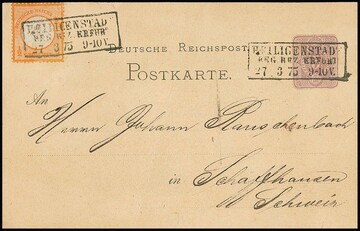 HEILIGENSTADT
REG. BEZ. ERFURT
27 3 75 9-10V.
DEUTSCHE REICHSPOST
HEILIGENSTADT
REG. BEZ. ERFURT
27 3 75 9-10V.
POSTKARTE.
An
Herrn Johann Rauschenbach
in Schaffhausen
Schweiz